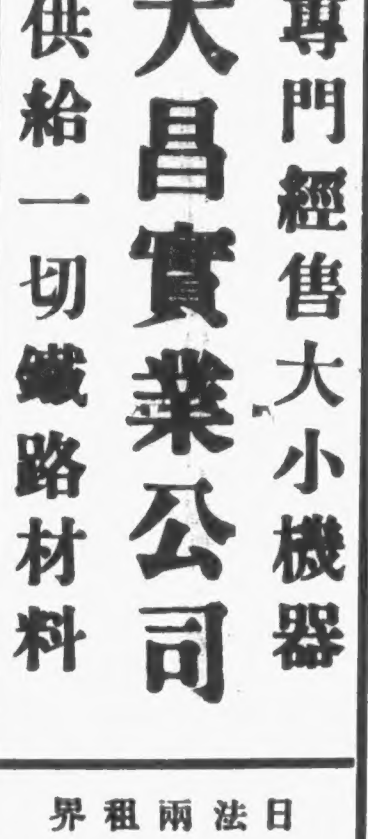 專門經售大小機器
大昌實業公司
供給一切鐵路材料
日法兩租界